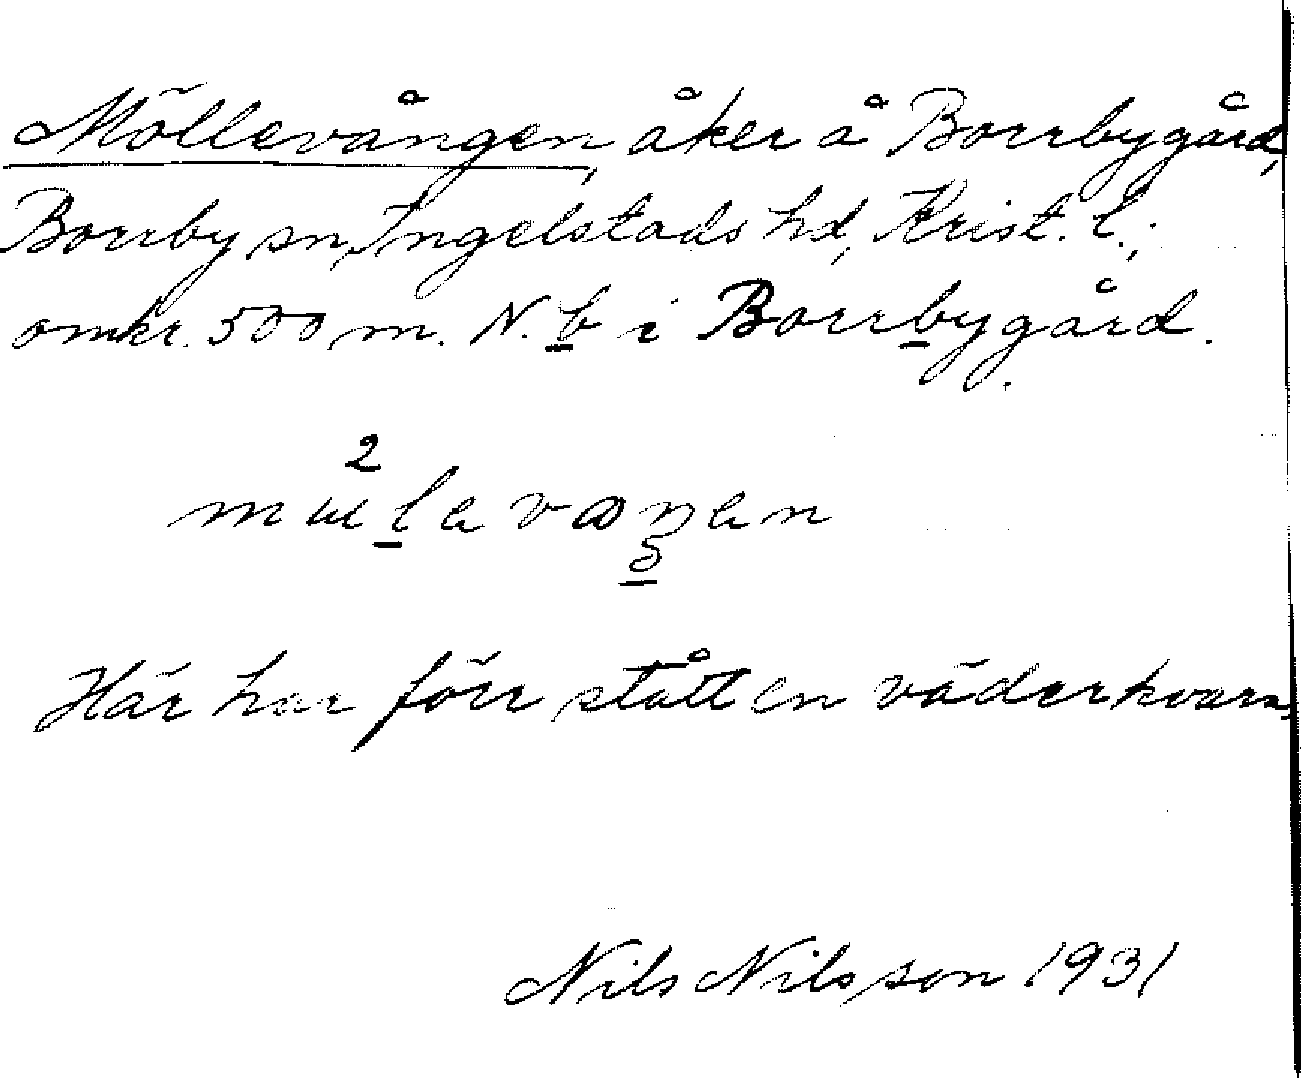 Möllevången, åker å Borrbygård,
Borrby sn, Ingelstads hd, Krist. l.;
omkr. 500 m. N. b i Borrbygård.
2
Här har förr stått en väderkvarn.
Nils Nilsson 1931